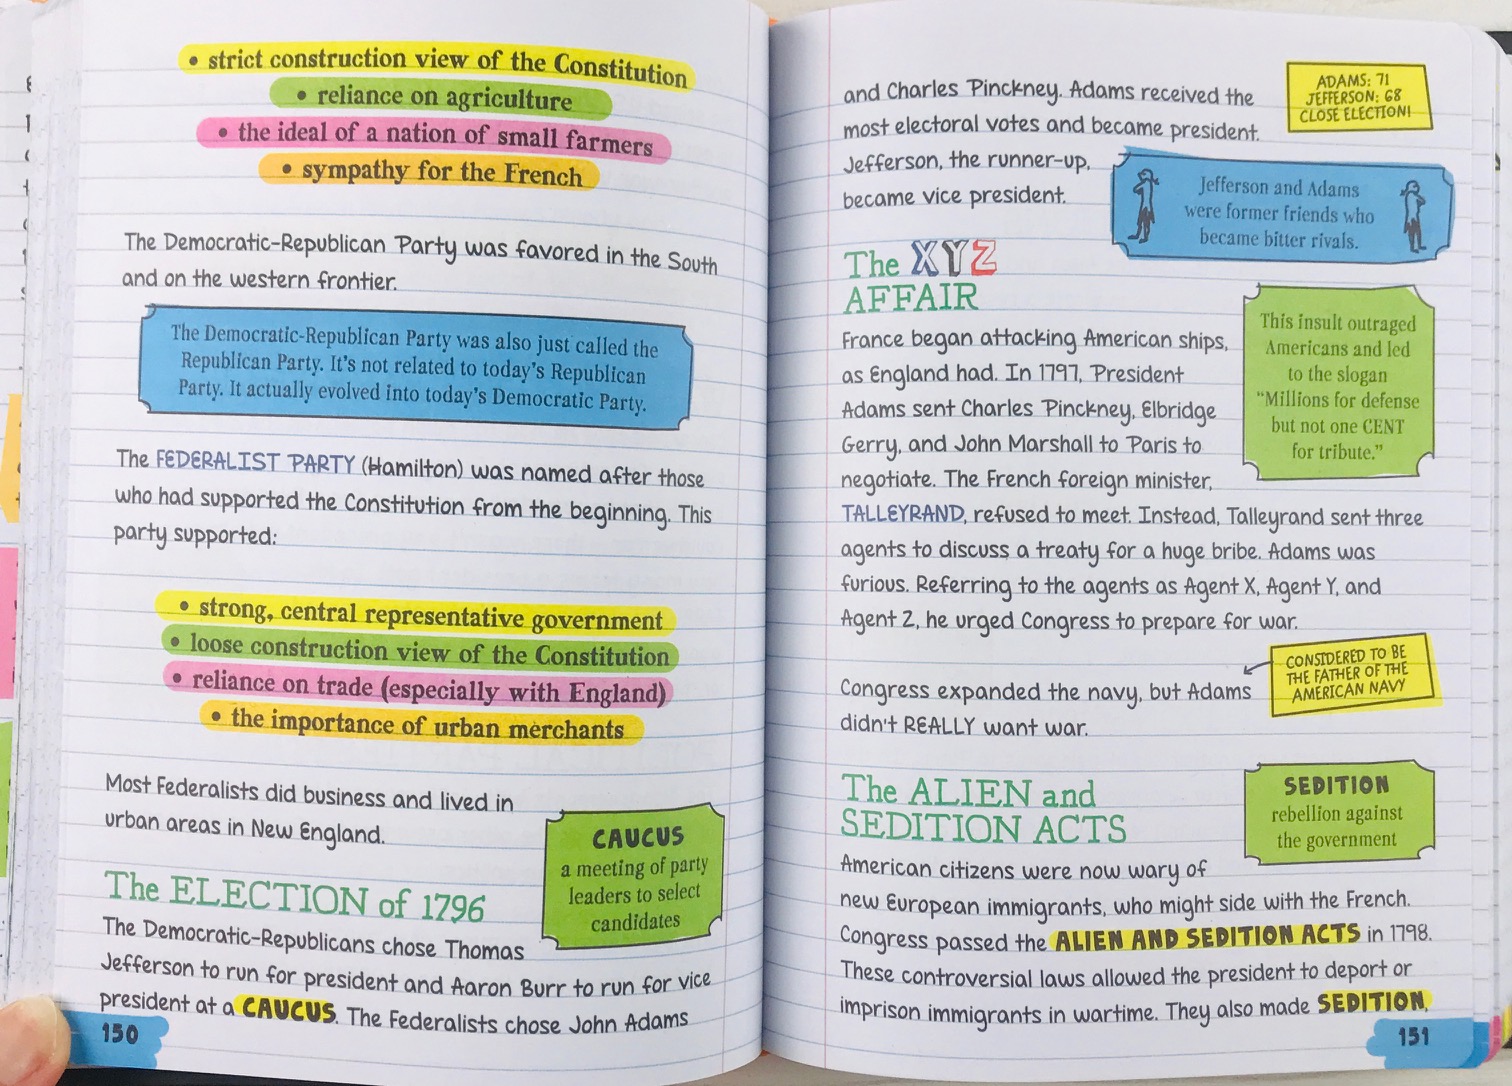 • strict construction view of the Constitution
• reliance on agriculture
• the ideal of a nation of small farmers
• sympathy for the French
The Democratic-Republican Party was favored in the South
and on the western frontier.
The Democratic-Republican Party was also just called the
Republican Party. It's not related to today's Republican
Party. It actually evolved into today's Democratic Party.
The FEDERALIST PARTY (Hamilton) was named after those
who had supported the Constitution from the beginning. This
party supported:
• strong, central representative government
• loose construction view of the Constitution
• reliance on trade (especially with England)
• the importance of urban merchants
Most Federalists did business and lived in
urban areas in New England.
CAUCUS
a meeting of party
leaders to select
candidates
The ELECTION of 1796
The Democratic-Republicans chose Thomas
Jefferson to run for president and Aaron Burr to run for vice
president at a CAUCUS. The Federalists chose John Adams
150
and Charles Pinckney. Adams received the
most electoral votes and became president.
Jefferson, the runner-up,
became vice president.
ADAMS: 71
JEFFERSON: 68
CLOSE ELECTION!
Jefferson and Adams
were former friends who
became bitter rivals.
The XYZ
AFFAIR
France began attacking American ships,
as England had. In 1797, President
Adams sent Charles Pinckney, Elbridge
Gerry, and John Marshall to Paris to
negotiate. The French foreign minister,
TALLEYRAND, refused to meet. Instead, Talleyrand sent three
agents to discuss a treaty for a huge bribe. Adams was
furious. Referring to the agents as Agent X, Agent Y, and
Agent Z, he urged Congress to prepare for war.
This insult outraged
Americans and led
to the slogan
"Millions for defense
but not one CENT
for tribute."
Congress expanded the navy, but Adams
didn't REALLY want war.
CONSIDERED TO BE
THE FATHER OF THE
AMERICAN NAVY
The ALIEN and
SEDITION ACTS
SEDITION
rebellion against
the government
American citizens were now wary of
new European immigrants, who might side with the French.
Congress passed the ALIEN AND SEDITION ACTS in 1798.
These controversial laws allowed the president to deport or
imprison immigrants in wartime. They also made SEDITION,
151